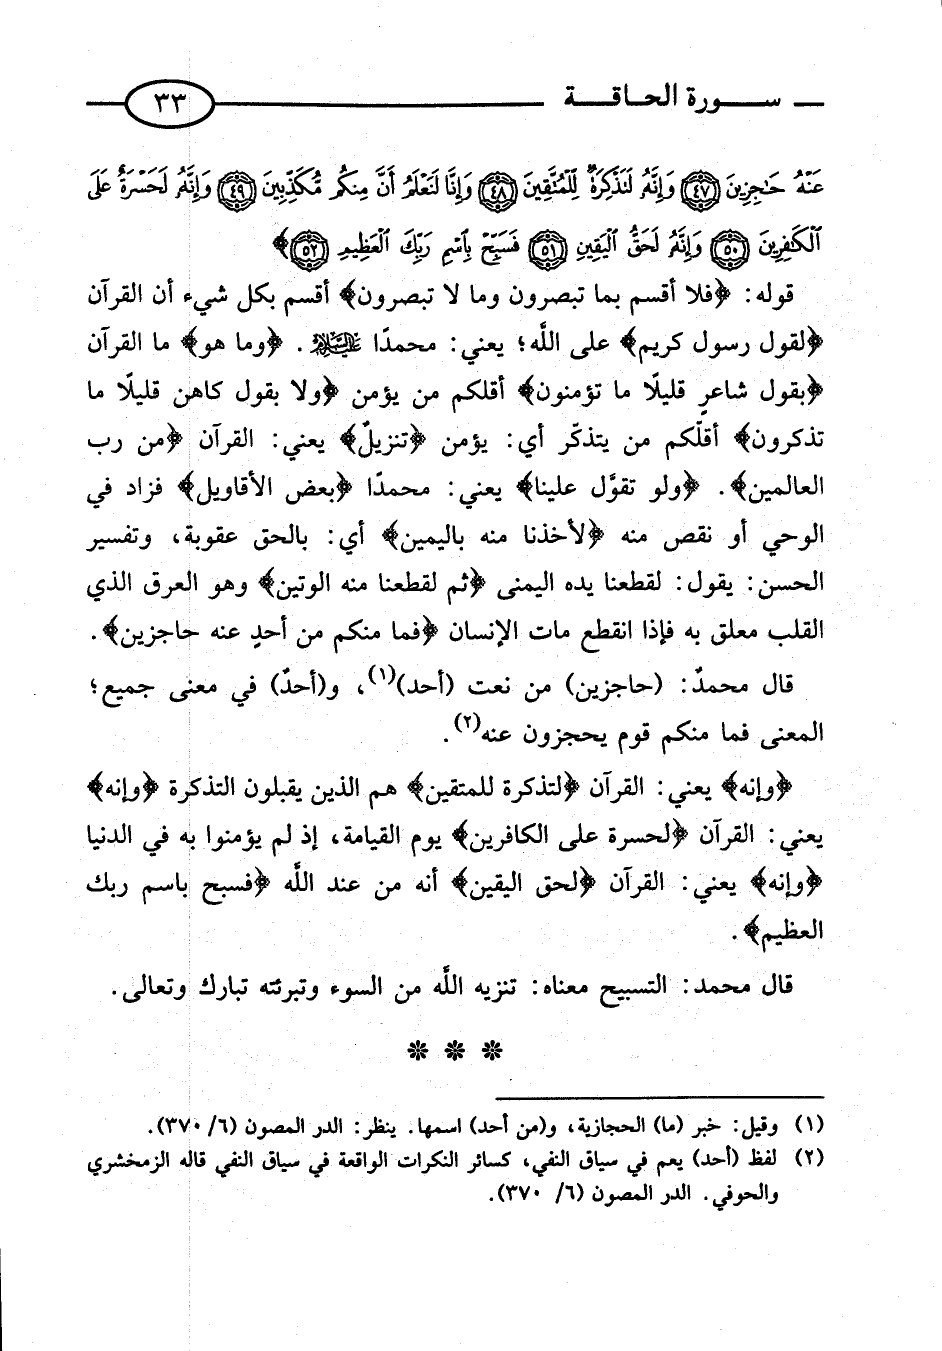 سورة الحاقة ٣٣
عَنْهُ حَٰجِزِينَ ٤٧ وَإِنَّهُۥ لَتَذْكِرَةٌ لِّلْمُتَّقِينَ ٤٨ وَإِنَّا لَنَعْلَمُ أَنَّ مِنكُم مُّكَذِّبِينَ ٤٩ وَإِنَّهُۥ لَحَسْرَةٌ عَلَى
ٱلْكَٰفِرِينَ ٥٠ وَإِنَّهُۥ لَحَقُّ ٱلْيَقِينِ ٥١ فَسَبِّحْ بِٱسْمِ رَبِّكَ ٱلْعَظِيمِ ٥٢﴾
قوله: ﴿فلا أقسم بما تبصرون وما لا تبصرون﴾ أقسم بكل شيء أن القرآن
﴿لقول رسول كريم﴾ على اللَّه؛ يعني: محمدًا عليه السلام. ﴿وما هو﴾ ما القرآن
﴿بقول شاعرٍ قليلًا ما تؤمنون﴾ أقلكم من يؤمن ﴿ولا بقول كاهن قليلًا ما
تذكرون﴾ أقلّكم من يتذكّر أي: يؤمن ﴿تنزيلٌ﴾ يعني: القرآن ﴿من رب
العالمين﴾. ﴿ولو تقوَّل علينا﴾ يعني: محمدًا ﴿بعض الأقاويل﴾ فزاد في
الوحي أو نقص منه ﴿لأخذنا منه باليمين﴾ أي: بالحق عقوبة، وتفسير
الحسن: يقول: لقطعنا يده اليمنى ﴿ثم لقطعنا منه الوتين﴾ وهو العرق الذي
القلب معلق به فإذا انقطع مات الإنسان ﴿فما منكم من أحدٍ عنه حاجزين﴾.
قال محمدٌ: (حاجزين) من نعت (أحد)(١)، و(أحدٌ) في معنى جميع؛
المعنى فما منكم قوم يحجزون عنه(٢).
﴿وإنه﴾ يعني: القرآن ﴿لتذكرة للمتقين﴾ هم الذين يقبلون التذكرة ﴿وإنه﴾
يعني: القرآن ﴿لحسرة على الكافرين﴾ يوم القيامة، إذ لم يؤمنوا به في الدنيا
﴿وإنه﴾ يعني: القرآن ﴿لحق اليقين﴾ أنه من عند اللَّه ﴿فسبح باسم ربك
العظيم﴾.
قال محمد: التسبيح معناه: تنزيه اللَّه من السوء وتبرئته تبارك وتعالى.
* * *
(١) وقيل: خبر (ما) الحجازية، و(من أحد) اسمها. ينظر: الدر المصون (٦/ ٣٧٠).
(٢) لفظ (أحد) يعم في سياق النفي، كسائر النكرات الواقعة في سياق النفي قاله الزمخشري
والحوفي. الدر المصون (٦/ ٣٧٠).